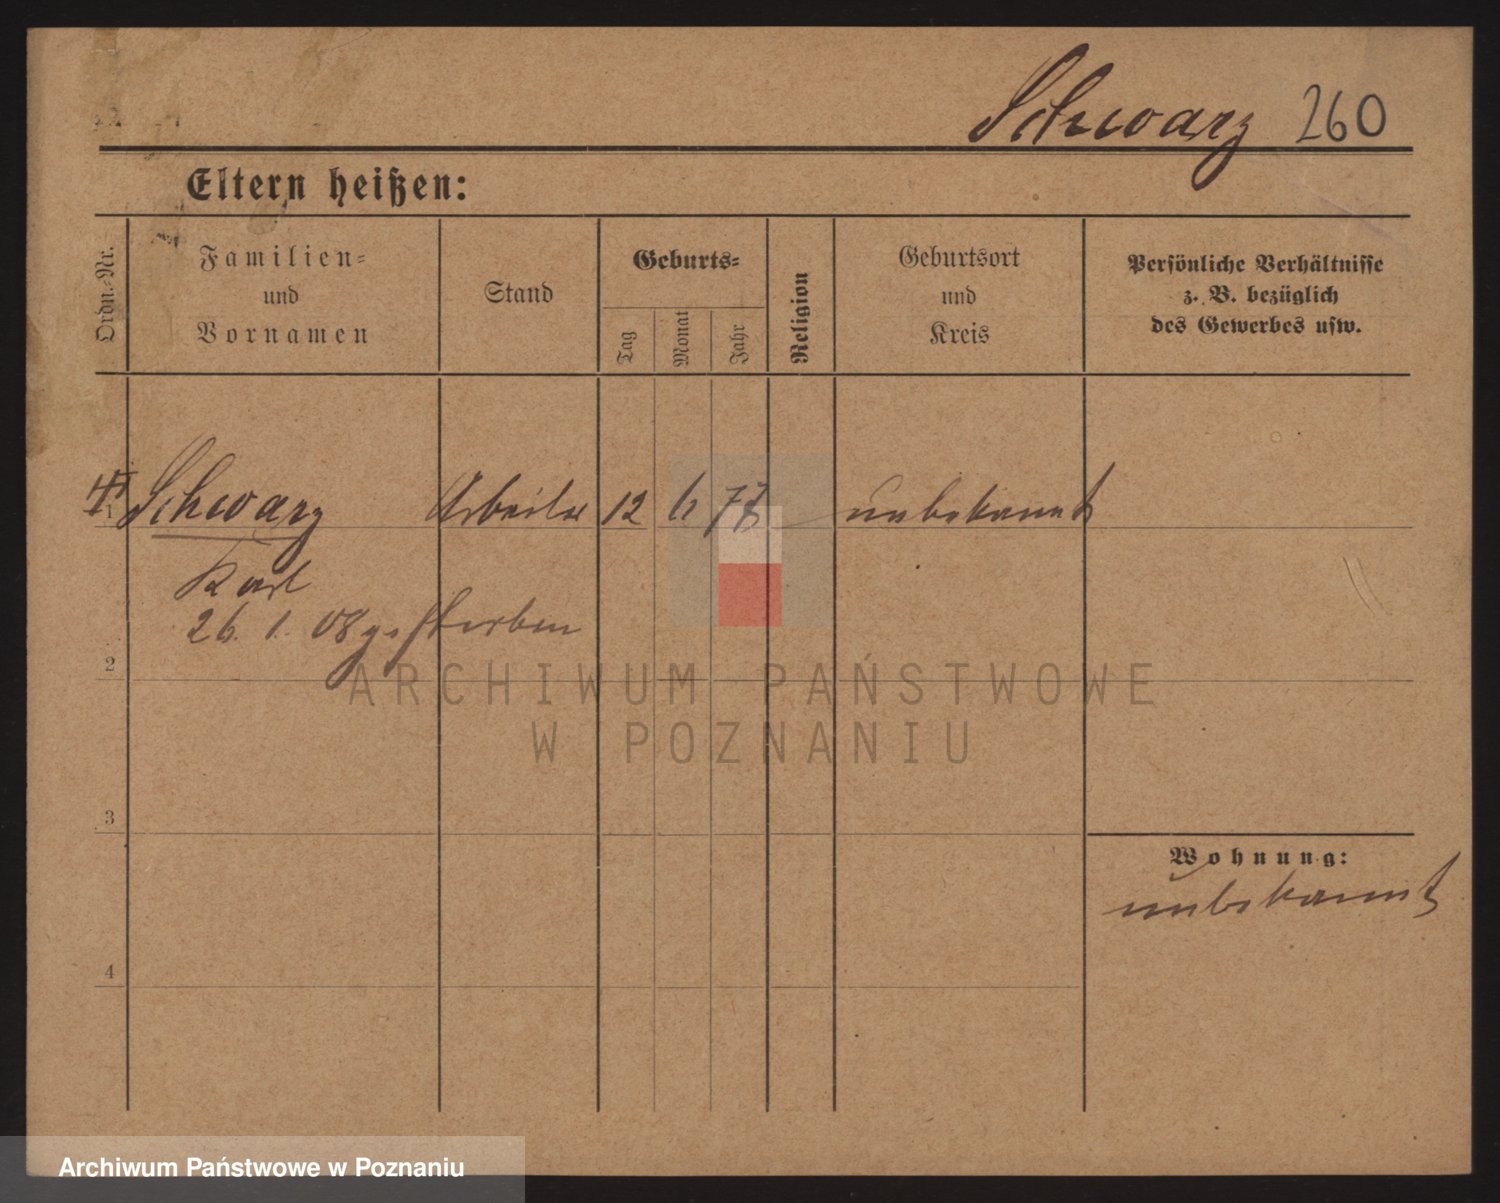 Schwarz 260
Eltern heißen:
Ordn.-Nr.
Familien-
und
Vornamen
Stand
Geburts-
Tag
Monat
Jahr
Religion
Geburtsort
und
Kreis
Persönliche Verhältnisse
z. B. bezüglich
des Gewerbes usw.
1 Schwarz Arbeiter 12 6 77 unbekannt
Karl
26. 1. 08 gestorben
2
ARCHIWUM PAŃSTWOWE
W POZNANIU
3
Wohnung:
unbekannt
4
Archiwum Państwowe w Poznaniu